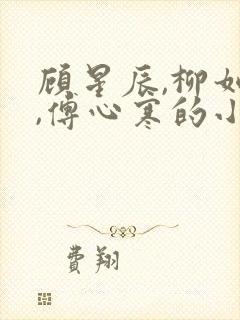 顾星辰,柳如
,傅心寒的小
费翔